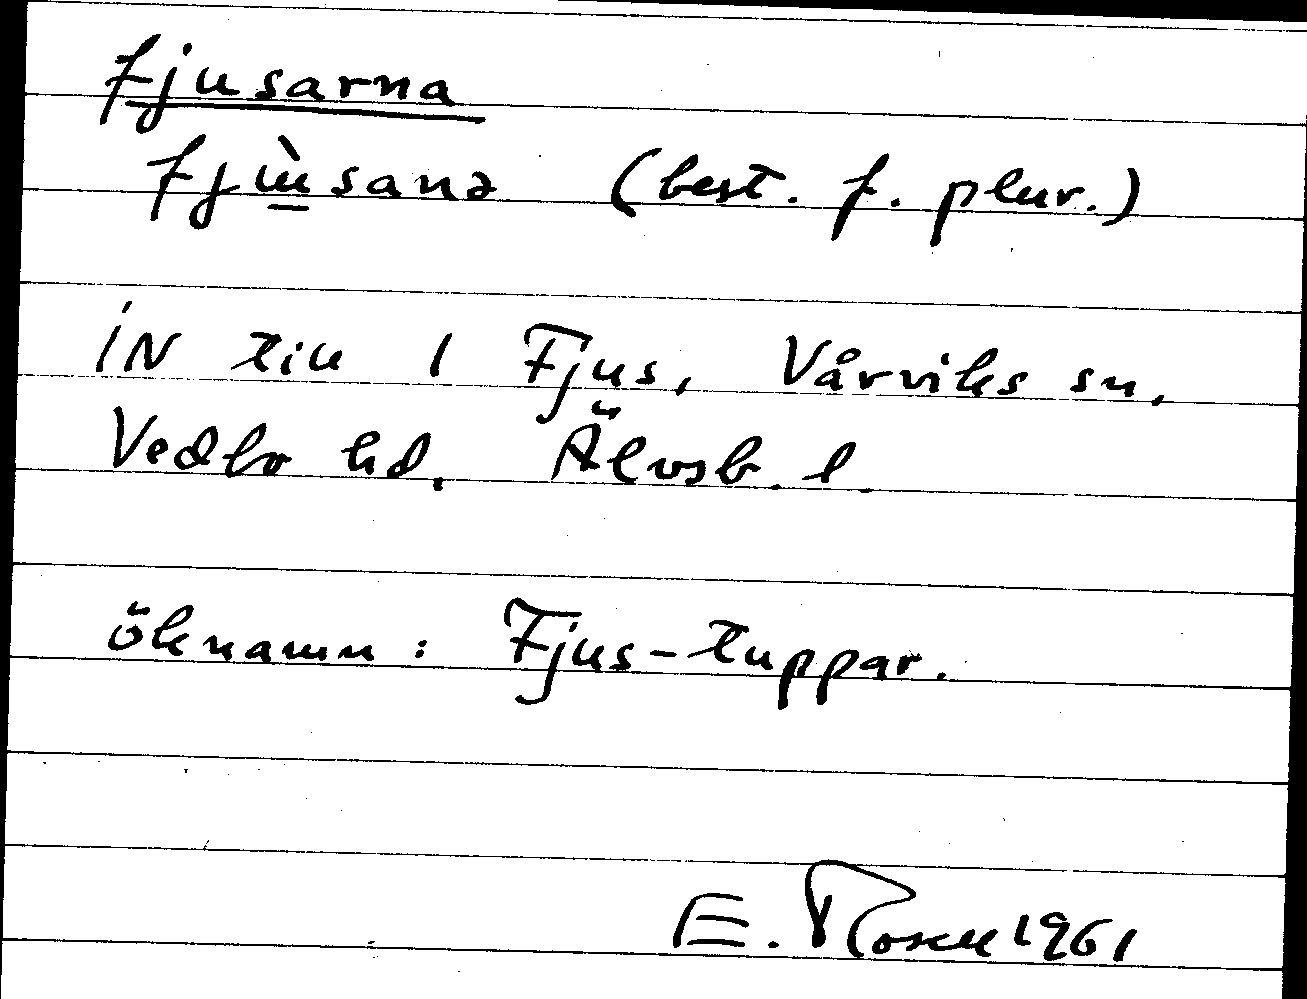 fjusarna
fjùsanə (best. f. plur.)
IN till 1 Fjus, Vårviks sn.
Vedbo hd. Älvsb. l.
öknamn: Fjus-tuppar.
E. Rosell 1961